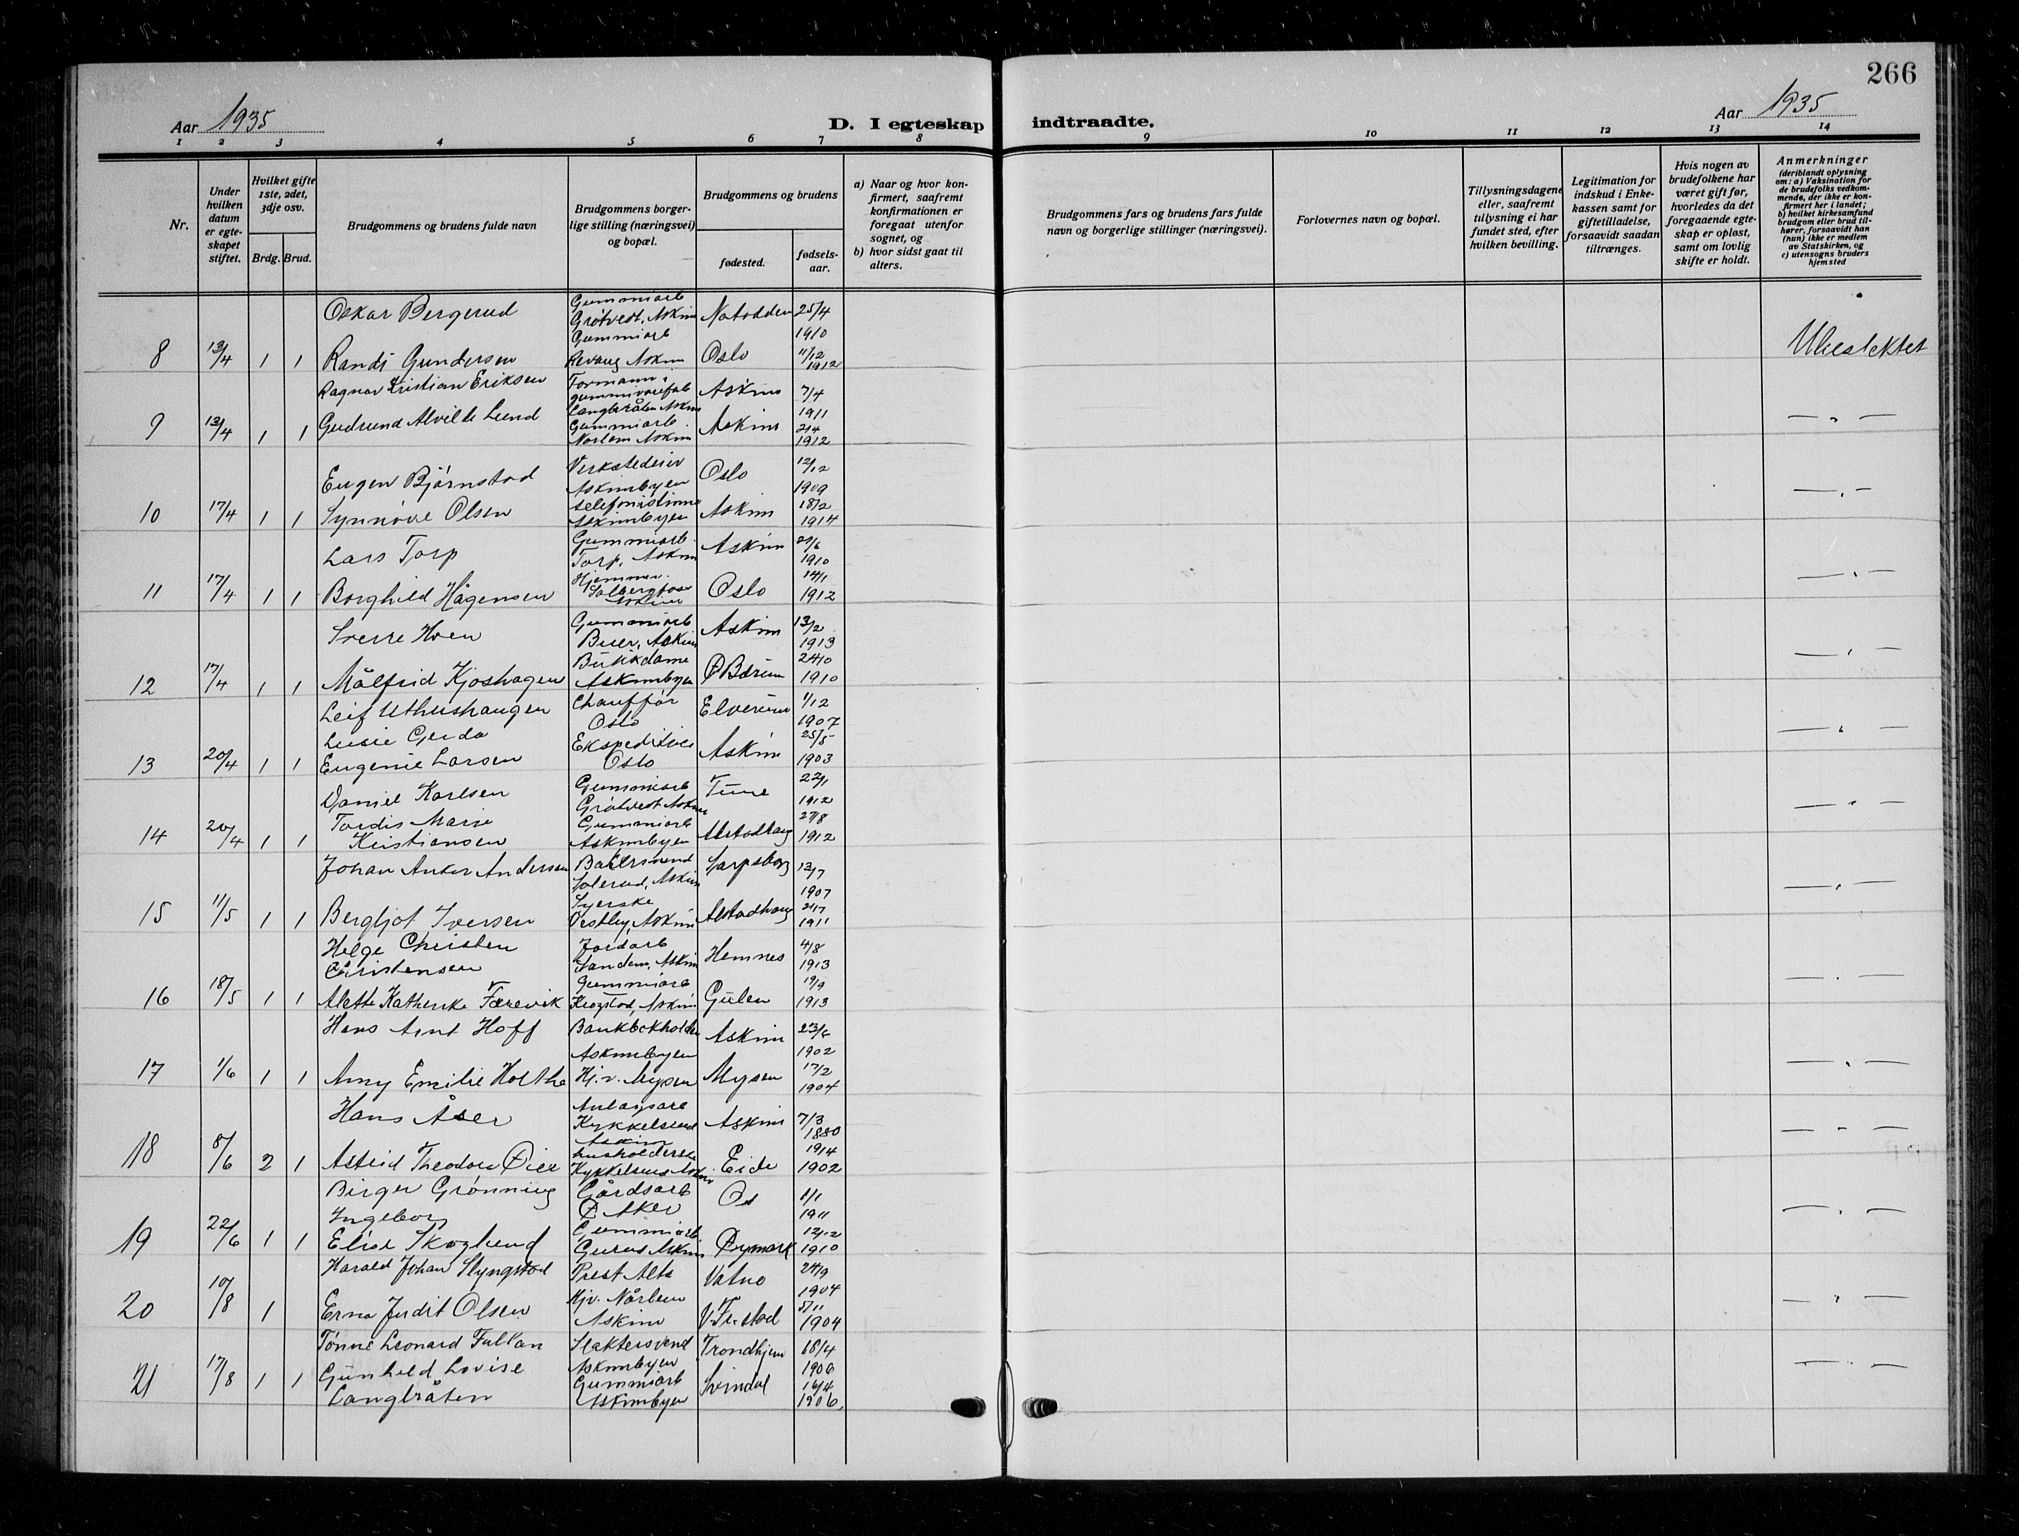 266
Aar 1935
D. I egteskap indtraadte.
Aar 1935
1 2 3 4 5 6 7 8 9 10 11 12 13 14
Nr.
Under hvilken datum er egteskapet stiftet.
Hvilket gifte 1ste, 2det, 3dje osv.
Brdg. Brud.
Brudgommens og brudens fulde navn
Brudgommens borgerlige stilling (næringsvei) og bopæl.
Brudgommens og brudens
fødested.
fødselsaar.
a) Naar og hvor konfirmert, saafremt konfirmationen er foregaat utenfor sognet, og
b) hvor sidst gaat til alters.
Brudgommens fars og brudens fars fulde navn og borgerlige stillinger (næringsvei).
Forlovernes navn og bopæl.
Tillysningsdagene eller, saafremt tillysning ei har fundet sted, efter hvilken bevilling.
Legitimation for indskud i Enkekassen samt for giftetilladelse, forsaavidt saadan tiltrænges.
Hvis nogen av brudefolkene har været gift før, hvorledes da det foregaaende egteskap er opløst, samt om lovlig skifte er holdt.
Anmerkninger
(deriblandt oplysning om: a) Vaksination for de brudefolks vedkommende, der ikke er konfirmert her i landet; b) hvilket kirkesamfund brudgom eller brud tilhører, forsaavidt han (hun) ikke er medlem av Statskirken, og c) utensogns bruders hjemsted
Oskar Bergerud Gummiarb Grøtvedt, Askim Notodden 25/4 1910
8 13/4 1 1 Randi Gundersen Gummiarb Revaug Askim Oslo 11/12 1912 Ubeslektet
Ragnar Kristian Eriksen Formann i gummivarefab Langbråten Askim Askim 7/4 1911
9 13/4 1 1 Gudrund Alvilde Lund Gummiarb. Norlem Askim Askim 2/4 1912 — " —
Eugen Bjørnstad Verkstedeier Askimbyen Oslo 12/12 1909
10 17/4 1 1 Synnøve Olsen telefonistinne Askimbyen Askim 18/2 1914 — " —
Lars Torp Gummiarb. Torp, Askim Askim 1910
11 17/4 1 1 Borghild Hågensen Askim Oslo 14/1 1912 — " —
Sverre Hoen Gummiarb Askim Askim 13/2 1913
12 17/4 1 1 Målfrid Kjoshagen Askimbyen Ø Bærum 24/10 1910 — " —
Leif Uthushaugen Chauffør Oslo Elverum 1/12 1907
13 20/4 1 1 Lusie Gerda Eugenie Larsen Oslo Askim 25/5 1903 — " —
Daniel Karlsen Gummiarb Grøtvedt Askim Tune 22/1 1912
14 20/4 1 1 Tordis Marie Kristiansen Gummiarb Askimbyen Alstadhaug 27/8 1912 — " —
Johan Anker Andersen Solerud, Askim Sarpsborg 12/7 1907
15 11/5 1 1 Bergljot Iversen Syerske Vestby, Askim Alstadhaug 1911 — " —
Helge Christen Christensen Jordarb Sandem, Askim Hemnes 4/8 1913
16 18/5 1 1 Alette Katherike Færevik Gummiarb Krogstad, Askim Gulen 1913 — " —
Hans Arnt Hoff Bankbokholder Askimbyen Askim 23/6 1902
17 1/6 1 1 Amy Emilie Holthe Hj.v. Mysen Mysen 17/2 1904 — " —
Hans Åser Anlagsarb Kykkelsrud Askim Askim 7/3 1880
18 8/6 2 1 Astrid Theodora husholderske Kykkelsrud Askim Eide 19/4 1902 — " —
Birger Grønning Gårdsarb Ø Aker Os 1/1 1911
19 22/6 1 1 Ingeborg Elise Skoglund Gummiarb. Askim Øymark 12/12 1910 — " —
Harald Johan Slyngstad Prest Alta Vatne 24/9 1904
20 10/8 1 Erna Judit Olsen Hjv. Nårlem Askim V. Fr.stad 5/11 1904 — " —
Tønne Leonard Fallan Slaktersvend Askimbyen Trondhjem 1906
21 17/8 1 1 Gunhild Lovise Langbråten Gummiarb Askimbyen Svindal 16/4 1906 — " —